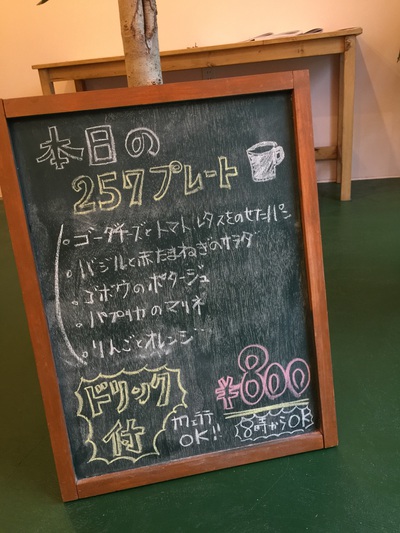 本日の
257プレート
・ゴーダチーズとトマト、レタスをのせたパン
・バジルと赤たまねぎのサラダ
・ゴボウのポタージュ
・パプリカのマリネ
・りんごとオレンジ
ドリンク
付
カフェラテ
OK!!
¥800
8時からOK